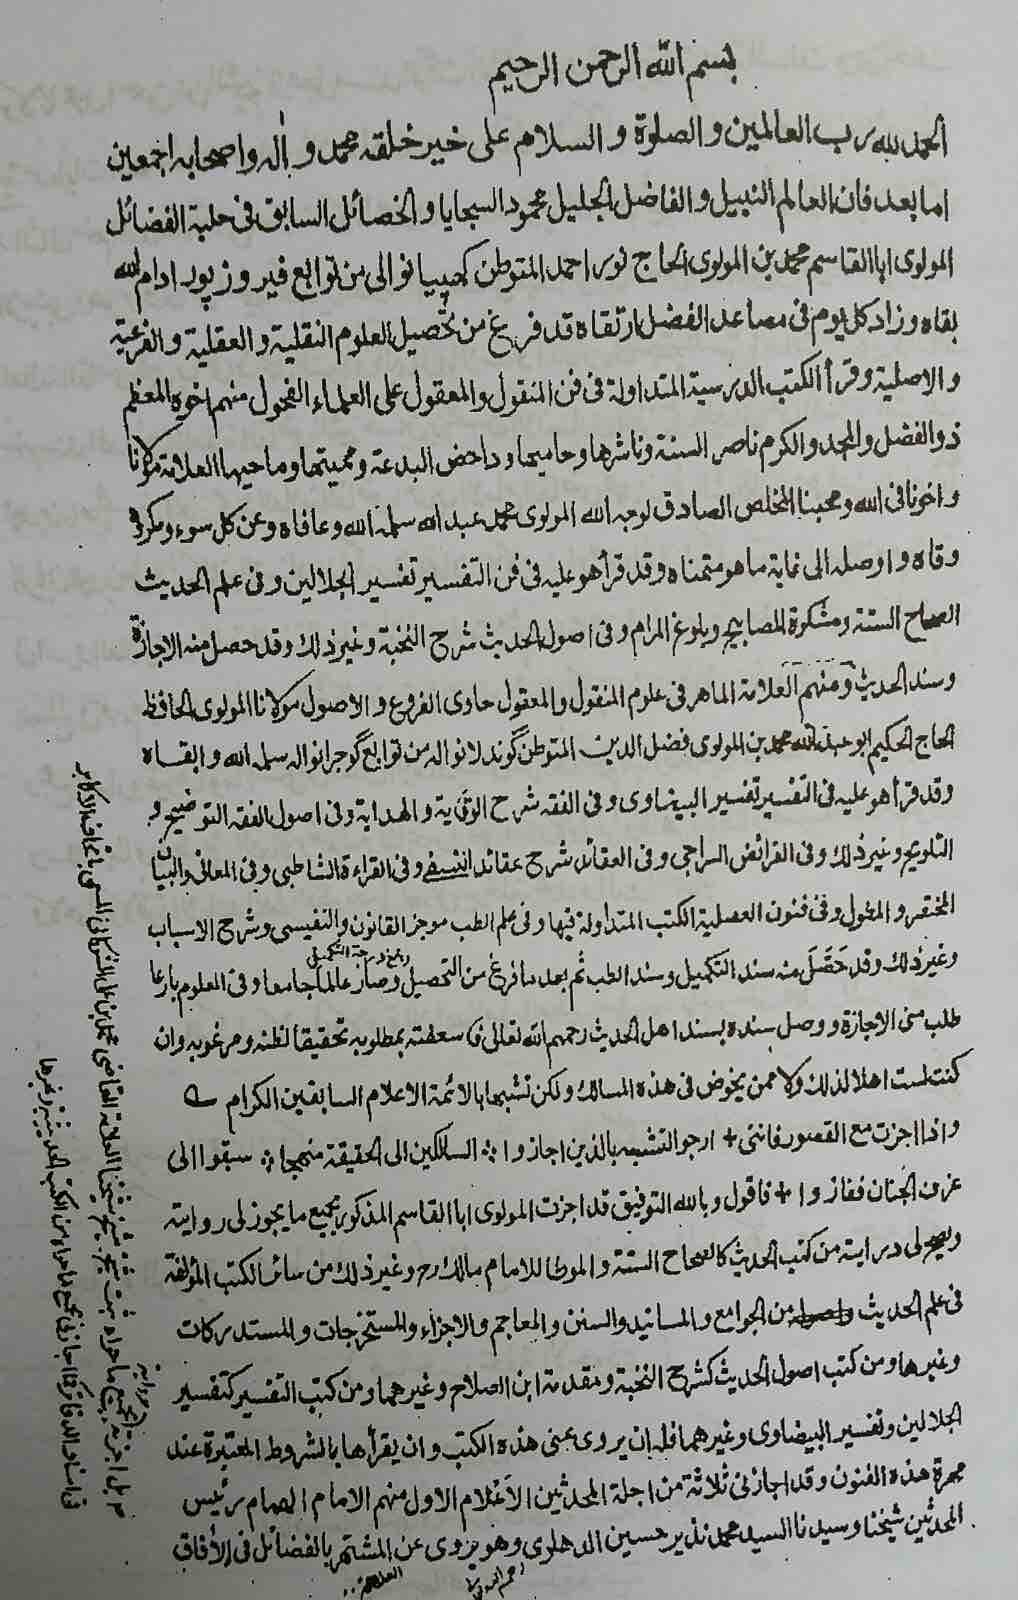 بسم الله الرحمن الرحيم
الحمد لله رب العالمين والصلوة والسلام على خير خلقه محمد و اله واصحابه اجمعين
اما بعد فان العالم النبيل والفاضل الجليل محمود السجايا والخصائل السابق فى حلبة الفضائل
المولوى ابا القاسم محمد بن المولوى الحاج نور احمد المتوطن كهپيانوالى من توابع فيروزپور ادام الله
بقاه وزاد كل يوم فى مصاعد الفضل ارتقاه قد فرغ من تحصيل العلوم النقلية والعقلية والفرعية
والاصلية وقرأ الكتب الدرسية المتداولة فى فن المنقول والمعقول على العلماء الفحول منهم اخوه المعظم
ذو الفضل والمجد والكرم ناصر السنة وناشرها وحاميها وداحض البدعة ومميتها وماحيها العلامة مولانا
واخونا فى الله ومحبنا المخلص الصادق لوجه الله المولوى محمد عبد الله سلمه الله وعافاه وعن كل سوء ومكروه
وقاه واوصله الى غاية ما هو متمناه وقد قرأ هو عليه فى فن التفسير تفسير الجلالين وفى علم الحديث
الصحاح الستة ومشكوة المصابيح وبلوغ المرام وفى اصول الحديث شرح النخبة وغير ذلك وقد حصل منه الاجازة
وسند الحديث ومنهم العلامة الماهر فى علوم المنقول والمعقول حاوى الفروع والاصول مولانا المولوى الحافظ
الحاج الحكيم ابو عبد الله محمد بن المولوى فضل الدين المتوطن گوندلانواله من توابع گوجرانواله سلمه الله وابقاه
وقد قرأ هو عليه فى التفسير تفسير البيضاوى وفى الفقه شرح الوقاية والهداية وفى اصول الفقه التوضيح و
التلويح وغير ذلك وفى الفرائض السراجى وفى العقائد شرح عقائد النسفى وفى القراءة الشاطبى وفى المعانى والبيان
المختصر والمطول وفى فنون العقلية الكتب المتداولة فيها وفى علم الطب موجز القانون والنفيسى وشرح الاسباب
وغير ذلك وقد حصل منه سند التكميل وسند الطب ثم بعد ما فرغ من التحصيل وبلغ درجة التكميل وصار عالما جامعا وفى العلوم بارعا
طلب منى الاجازة ووصل سنده بسند اهل الحديث رحمهم الله تعالى فاسعفته بمطلوبه تحقيقا لظنه ومرغوبه وان
كنت لست اهلا لذلك ولا ممن يخوض فى هذه المسالك ولكن تشبها بالائمة الاعلام السابقين الكرام
واذا اجزت مع القصور فاننى + ارجو التشبه بالذين اجازوا السالكين الى الحقيقة منهجا سبقوا الى
غرف الجنان ففازوا + فاقول وبالله التوفيق قد اجزت المولوى ابا القاسم المذكور بجميع ما يجوز لى روايته
ويصح لى درايته من كتب الحديث كالصحاح الستة والموطا للامام مالك رح وغير ذلك من سائر الكتب المؤلفة
فى علم الحديث من الجوامع والمسانيد والسنن والمعاجم والاجزاء والمستخرجات والمستدركات
وغيرها ومن كتب اصول الحديث كشرح النخبة ومقدمة ابن الصلاح وغيرهما ومن كتب التفسير كتفسير
الجلالين وتفسير البيضاوى وغيرهما فله ان يروى عنى هذه الكتب وان يقرأها بالشروط المعتبرة عند
مهرة هذه الفنون وقد اجازنى ثلاثة من اجلة المحدثين الاعلام الاول منهم الامام الهمام رئيس
المحدثين شيخنا وسيدنا السيد محمد نذير حسين الدهلوى وهو يروى عن المشتهر بالفضائل فى الآفاق
بل اجزته بجميع ما حواه ثبت شيخ شيخنا العلامة القاضى محمد بن على الشوكانى المسمى باتحاف الاكابر
كما اجازنى بجميع ما حواه من الكتب الحديثية وغيرها